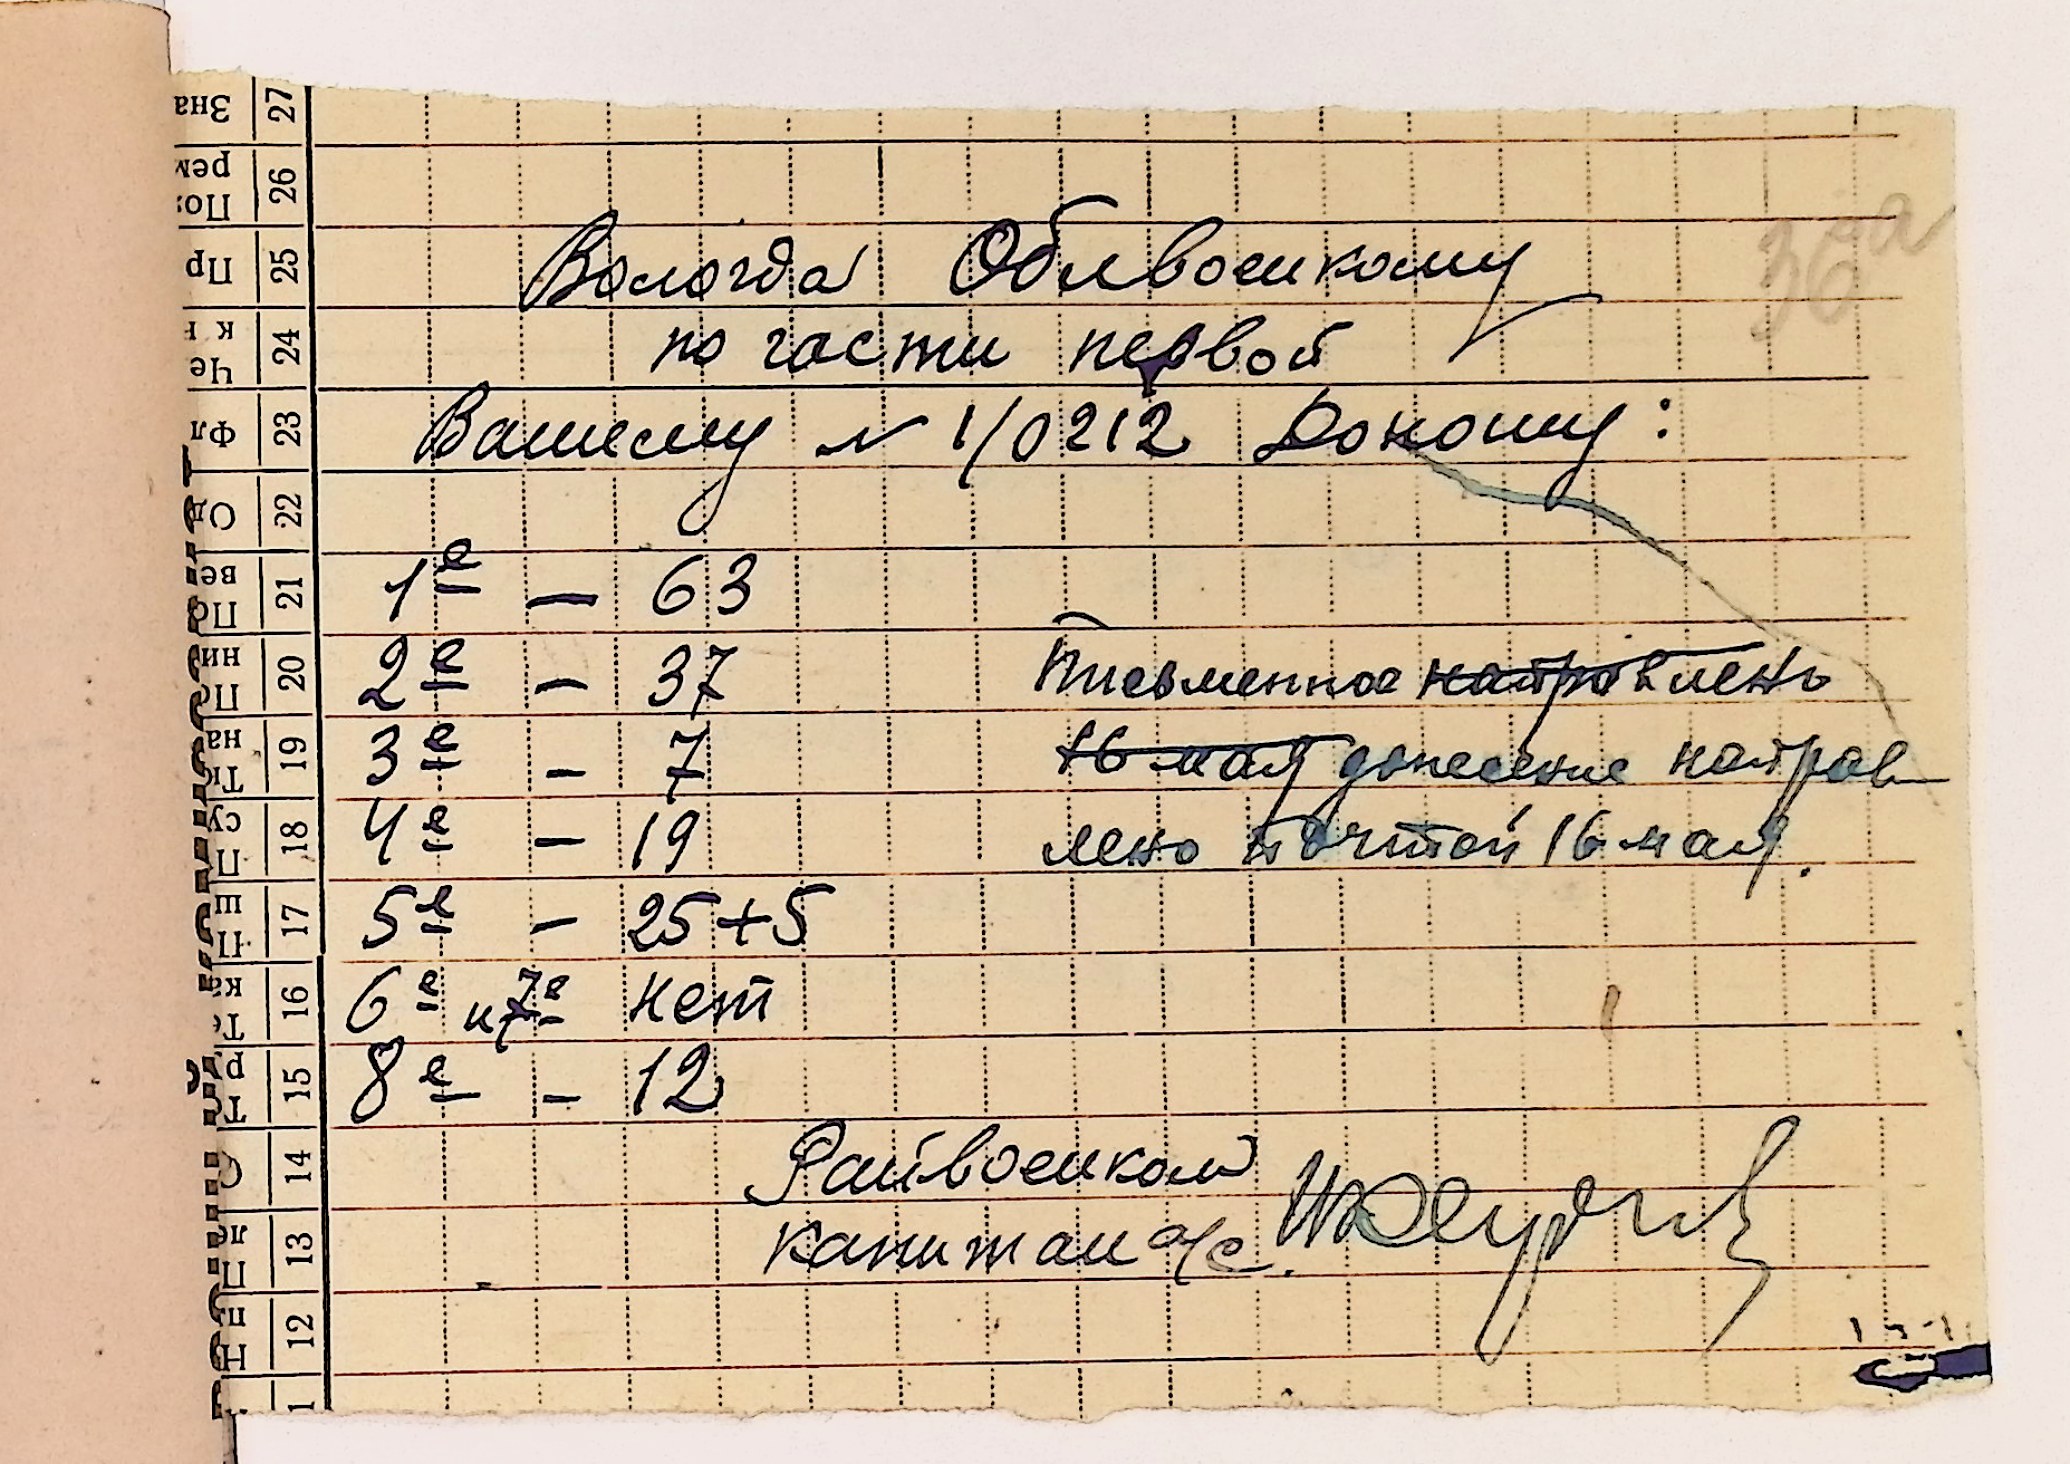 36а
Вологда Облвоенкому
по части первой
Вашему № 1/0212 Доношу:
1е – 63
2е – 37
3е – 7
4е – 19
5е – 25+5
6е и 7е нет
8е – 12
Письменное направлень
16 мая донесение направ
лено почтой 16 мая.
Райвоенком
капитан а/с.
27 Зна
26 Поз рем
25 Пр
24 Че к н
23 Фл
22 Од
21 По ве
20 По ни
19 на
18 П су
17 П ш
16 Те ка
15 Т р
14 С
13 П ле
12 Н п